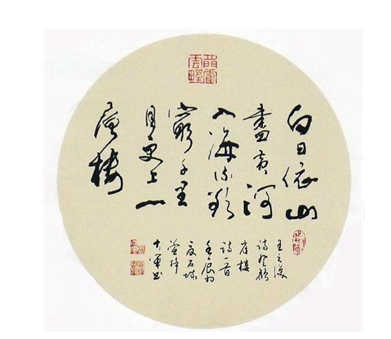 白日依山
盡黃河
入海流欲
窮千里
目更上一
層樓
王之渙
詩登鸛
雀樓
詩一首
壬辰初
夏石城